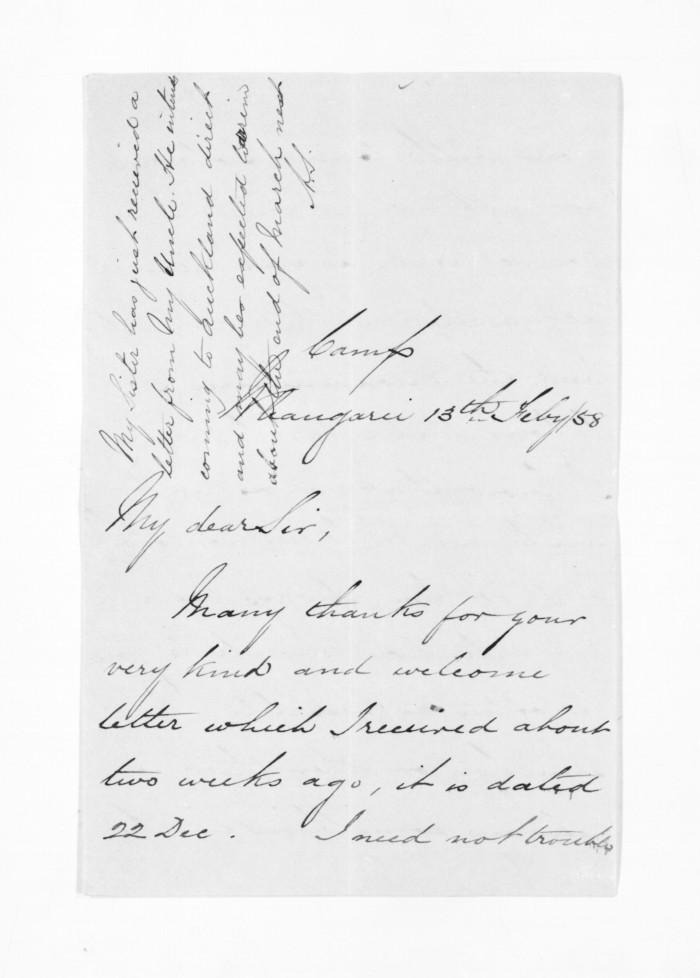 My Sister has just received a
letter from my Uncle. He intends
coming to Auckland direct
and may be expected
about the end of March next
Camp
Whangarei 13th Feby/58
My dear Sir,
Many thanks for your
very kind and welcome
letter which I received about
two weeks ago, it is dated
22 Dec. I need not trouble